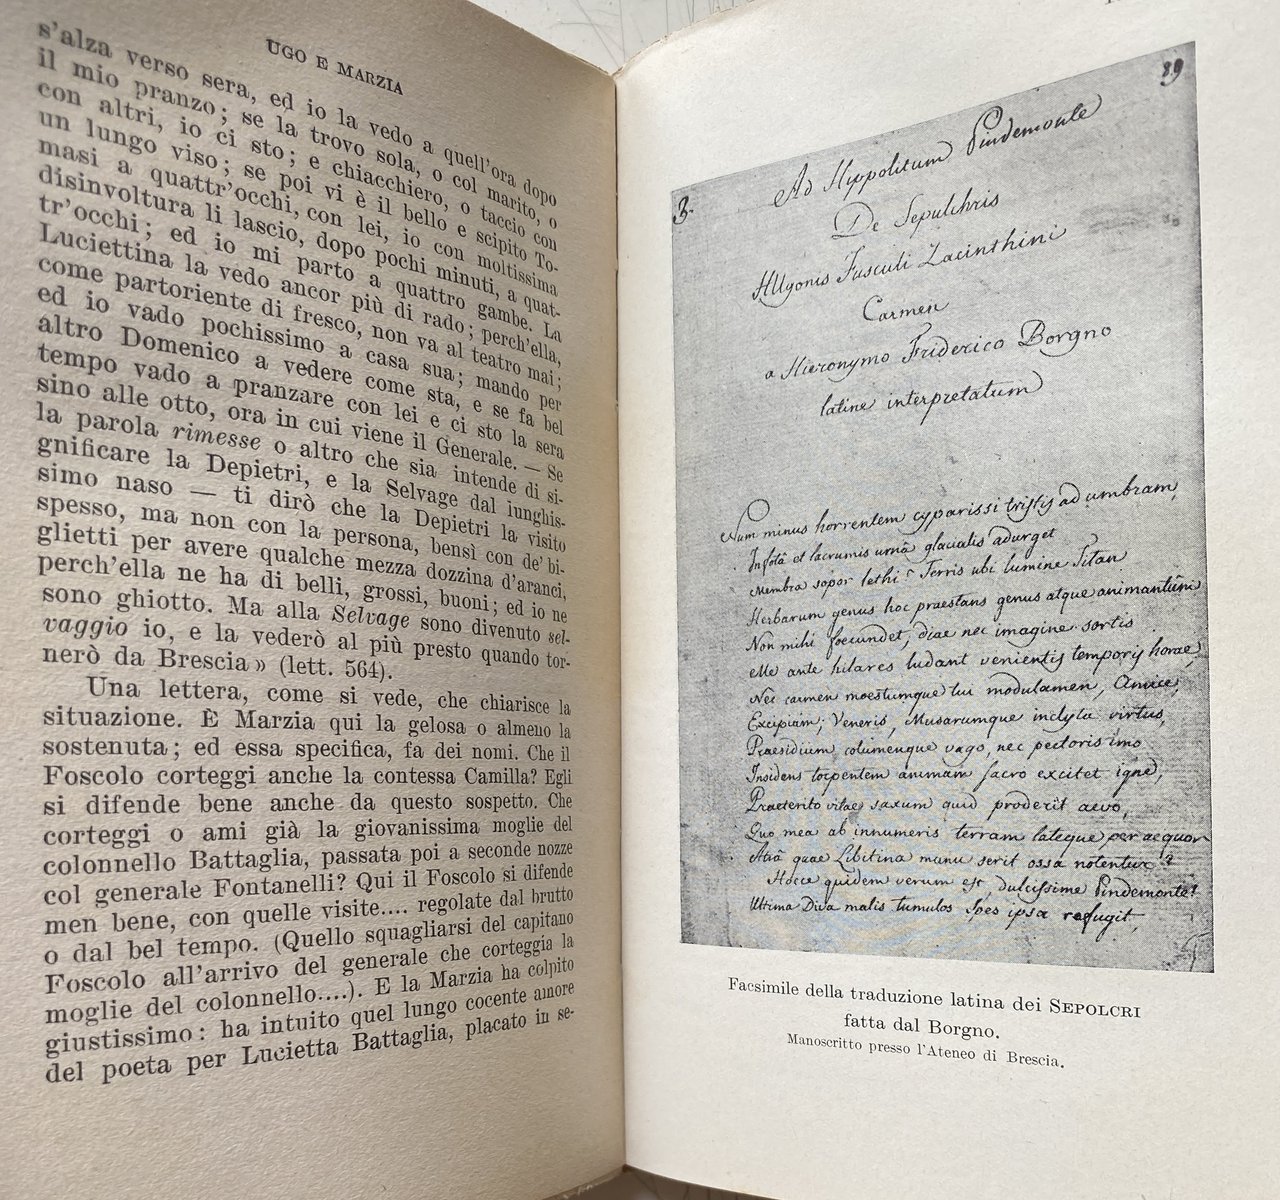 UGO E MARZIA
s'alza verso sera, ed io la vedo a quell'ora dopo
il mio pranzo; se la trovo sola, o col marito, o
con altri, io ci sto; e chiacchiero, o taccio con
un lungo viso; se poi vi è il bello e scipito To-
masi a quattr'occhi, con lei, io con moltissima
disinvoltura li lascio, dopo pochi minuti, a quat-
tr'occhi; ed io mi parto a quattro gambe. La
Luciettina la vedo ancor più di rado; perch'ella,
come partoriente di fresco, non va al teatro mai;
ed io vado pochissimo a casa sua; mando per
altro Domenico a vedere come sta, e se fa bel
tempo vado a pranzare con lei e ci sto la sera
sino alle otto, ora in cui viene il Generale. — Se
la parola rimesse o altro che sia intende di si-
gnificare la Depietri, e la Selvage dal lunghis-
simo naso — ti dirò che la Depietri la visito
spesso, ma non con la persona, bensì con de' bi-
glietti per avere qualche mezza dozzina d'aranci,
perch'ella ne ha di belli, grossi, buoni; ed io ne
sono ghiotto. Ma alla Selvage sono divenuto sel-
vaggio io, e la vederò al più presto quando tor-
nerò da Brescia» (lett. 564).
Una lettera, come si vede, che chiarisce la
situazione. È Marzia qui la gelosa o almeno la
sostenuta; ed essa specifica, fa dei nomi. Che il
Foscolo corteggi anche la contessa Camilla? Egli
si difende bene anche da questo sospetto. Che
corteggi o ami già la giovanissima moglie del
colonnello Battaglia, passata poi a seconde nozze
col generale Fontanelli? Qui il Foscolo si difende
men bene, con quelle visite.... regolate dal brutto
o dal bel tempo. (Quello squagliarsi del capitano
Foscolo all'arrivo del generale che corteggia la
moglie del colonnello....). E la Marzia ha colpito
giustissimo: ha intuito quel lungo cocente amore
del poeta per Lucietta Battaglia, placato in se-
89
3.
Ad Hippolitum Pindemonte
De Sepulchris
Hugonis Fusculi Zacinthini
Carmen
a Hieronymo Friderico Borgno
latine interpretatum
Num minus horrentem cyparissi tristis ad umbram,
Infotâ et lacrumis urnâ glacialis adurget
Membra sopor lethi? Terris ubi lumine Titan
Herbarum genus hoc praestans genus atque animantûm
Non mihi foecundet, diae nec imagine sortis
Me ante hilares ludant venientis temporis horae,
Nec carmen moestumque tui modulamen, Amice,
Excipiam; Veneris, Musarumque inclyta virtus,
Praesidium, columenque vago, nec pectoris imo
Insidens torpentem animam sacro excitet igne,
Praeterito vitae saxum quid proderit aevo,
Quo mea ab innumeris terram lateque per aequor
Atrâ quae Libitina manu serit ossa notentur?
Hocce quidem verum est, dulcissime Pindemonte!
Ultima Diva malis tumulos Spes ipsa refugit,
Facsimile della traduzione latina dei SEPOLCRI
fatta dal Borgno.
Manoscritto presso l'Ateneo di Brescia.